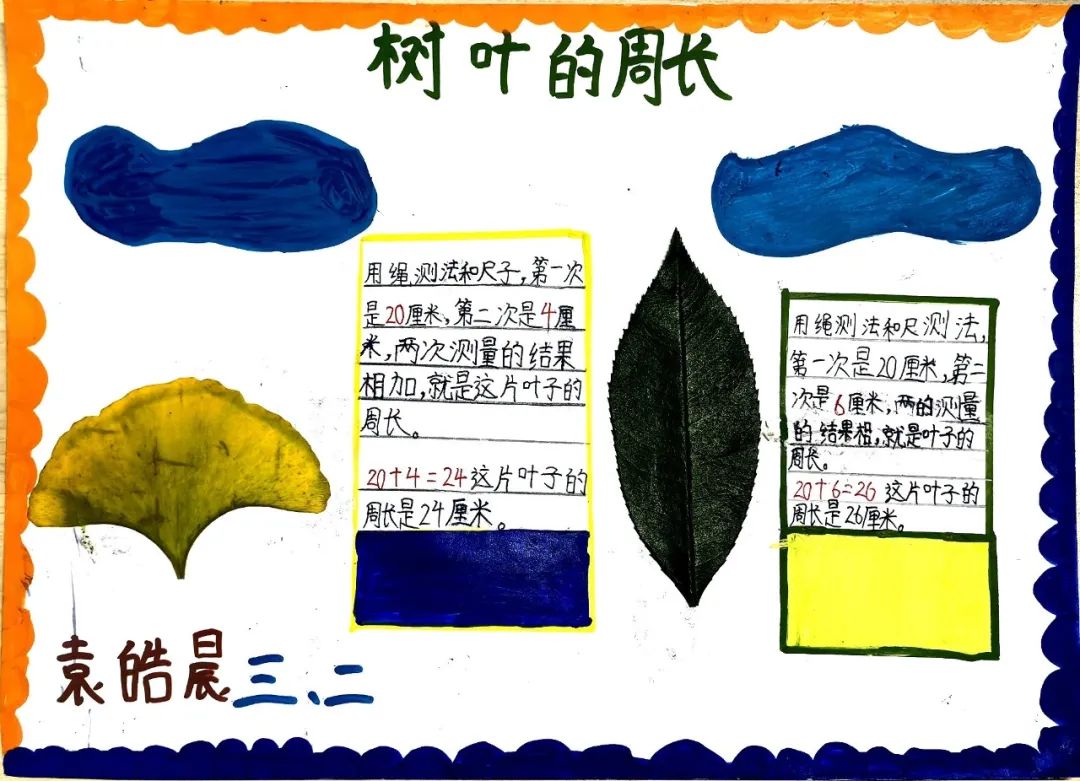 树叶的周长
用绳测法和尺子,第一次
是20厘米,第二次是4厘
米,两次测量的结果
相加,就是这片叶子的
周长。
20+4=24这片叶子的
周长是24厘米。
用绳测法和尺测法,
第一次是20厘米,第二
次是6厘米,两的测量
的结果相,就是叶子的
周长。
20+6=26这片叶子的
周长是26厘米。
袁皓晨三、二